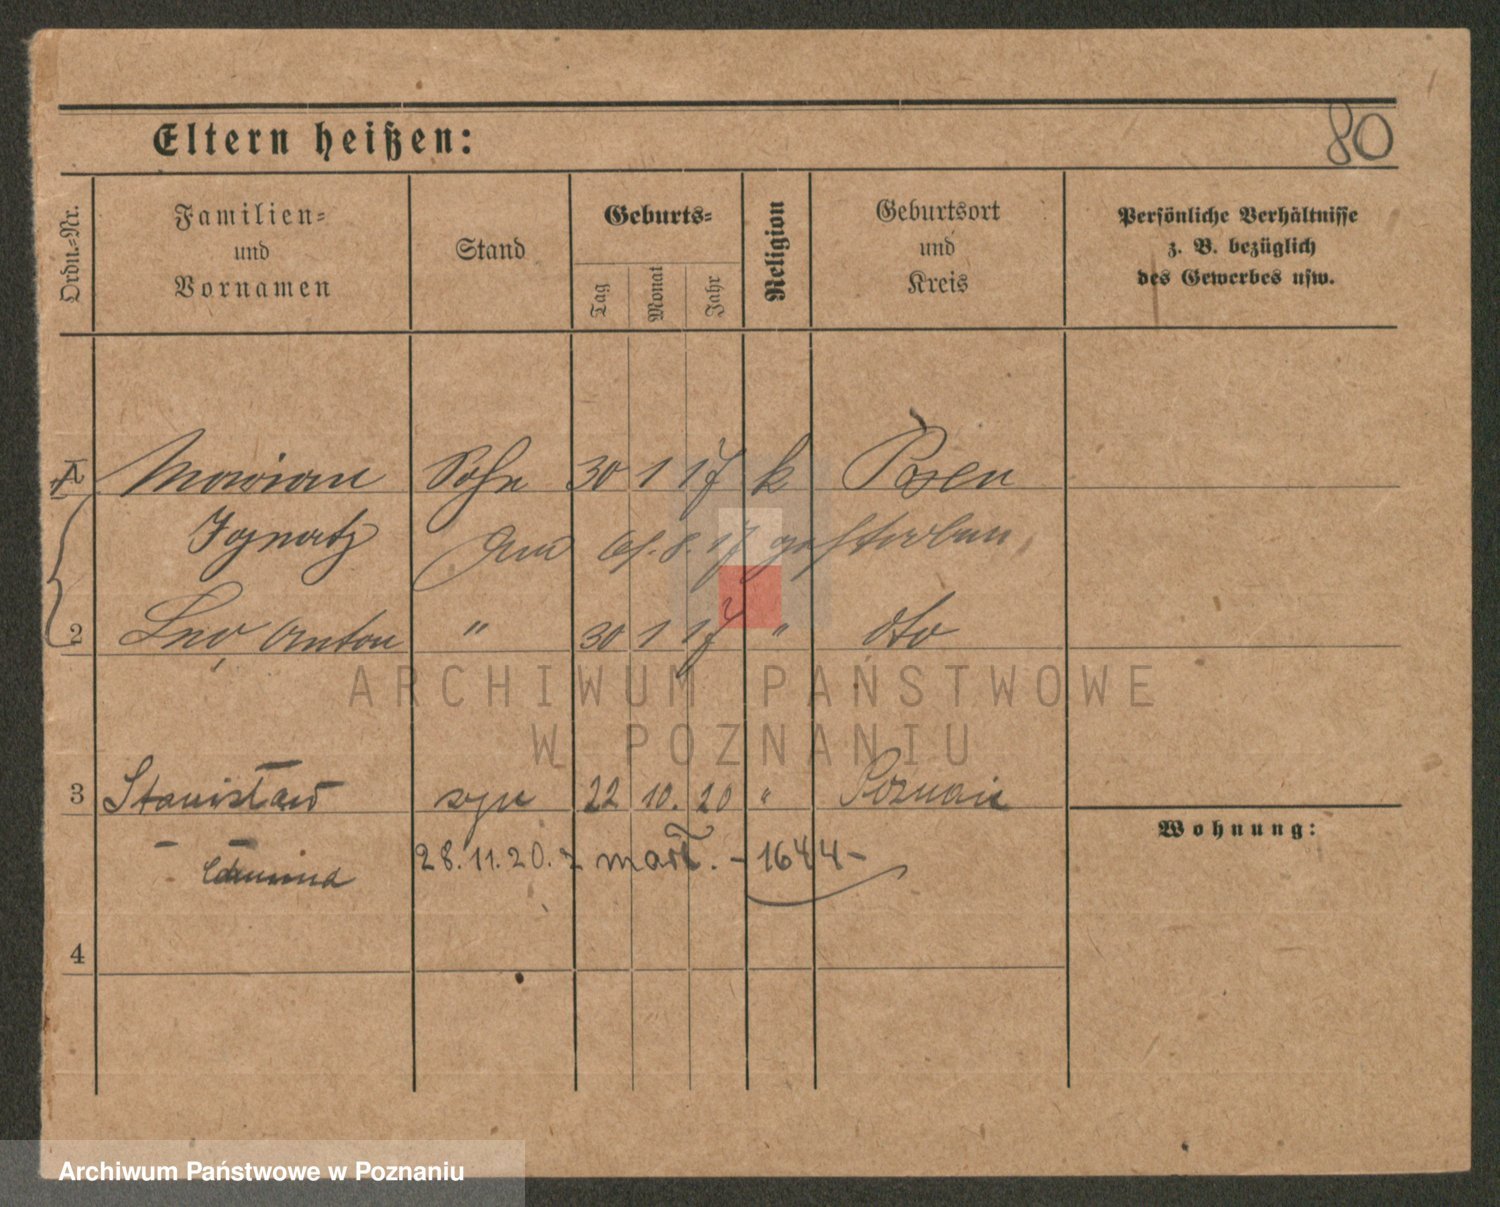 80
Eltern heißen:
Ordn.-Nr.
Familien-
und
Vornamen
Stand
Geburts-
Tag
Monat
Jahr
Religion
Geburtsort
und
Kreis
Persönliche Verhältnisse
z. B. bezüglich
des Gewerbes usw.
1 Marian Sohn 30 1 17 k Posen
Ignatz Am 8. 17 gestorben
2 Leo Anton " 30 1 17 " dto
ARCHIWUM PAŃSTWOWE
W POZNANIU
3 Stanisław syn 22 10. 20 " Poznań
28.11.20. - mart. - 1644-
Wohnung:
4
Archiwum Państwowe w Poznaniu